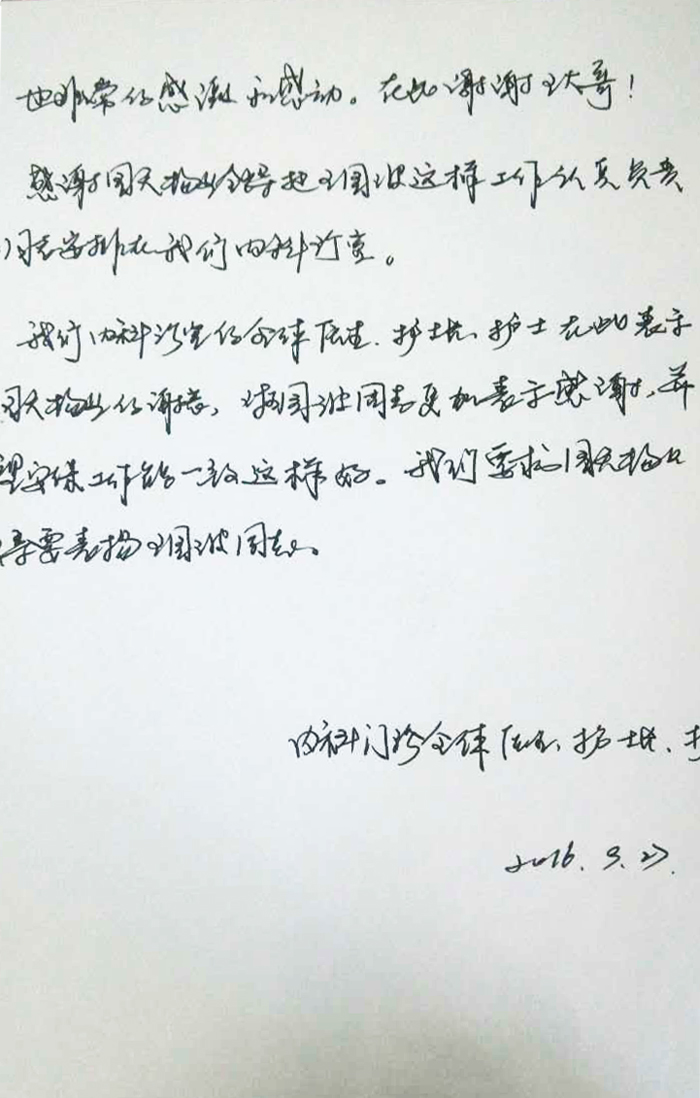 她非常的感谢和感动。在此谢谢王大哥！
感谢国天物业领导把王国波这样工作认真负责
同志安排在我们内科诊室。
我们内科诊室的全体医生、护士长、护士在此表示
国天物业的谢意，对王国波同志更加表示感谢，并
安保工作能一致这样好。我们要求国天物业
导要表扬王国波同志。
内科门诊全体医生、护士长、护
2016.9.27.